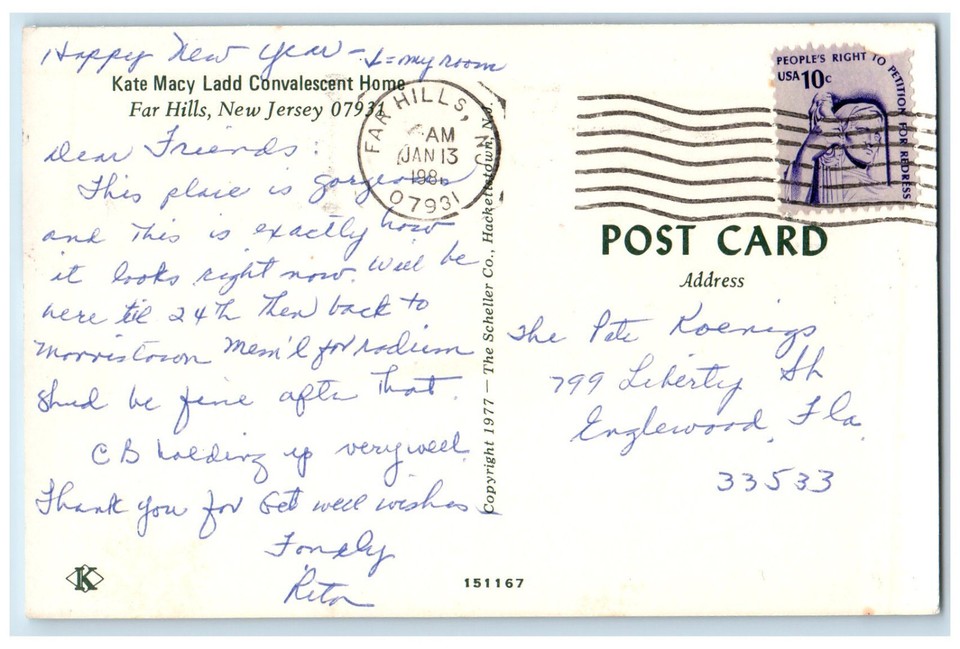 Happy New Year - ↓ = my room
Kate Macy Ladd Convalescent Home
Far Hills, New Jersey 07931
Dear Friends:
This place is gorgeous
and this is exactly how
it looks right now. Will be
here til 24th then back to
Morristown Mem'l for radium
Shud be fine after that.
CB holding up very well.
Thank you for Get well wishes
Fondly
Rita
FAR HILLS, NJ
AM
JAN 13
198
07931
Copyright 1977 — The Scheller Co., Hackettstown, N.J.
PEOPLE'S RIGHT TO PETITION FOR REDRESS
USA 10c
POST CARD
Address
The Pete Koenigs
799 Liberty
Englewood, Fla.
33533
K
151167